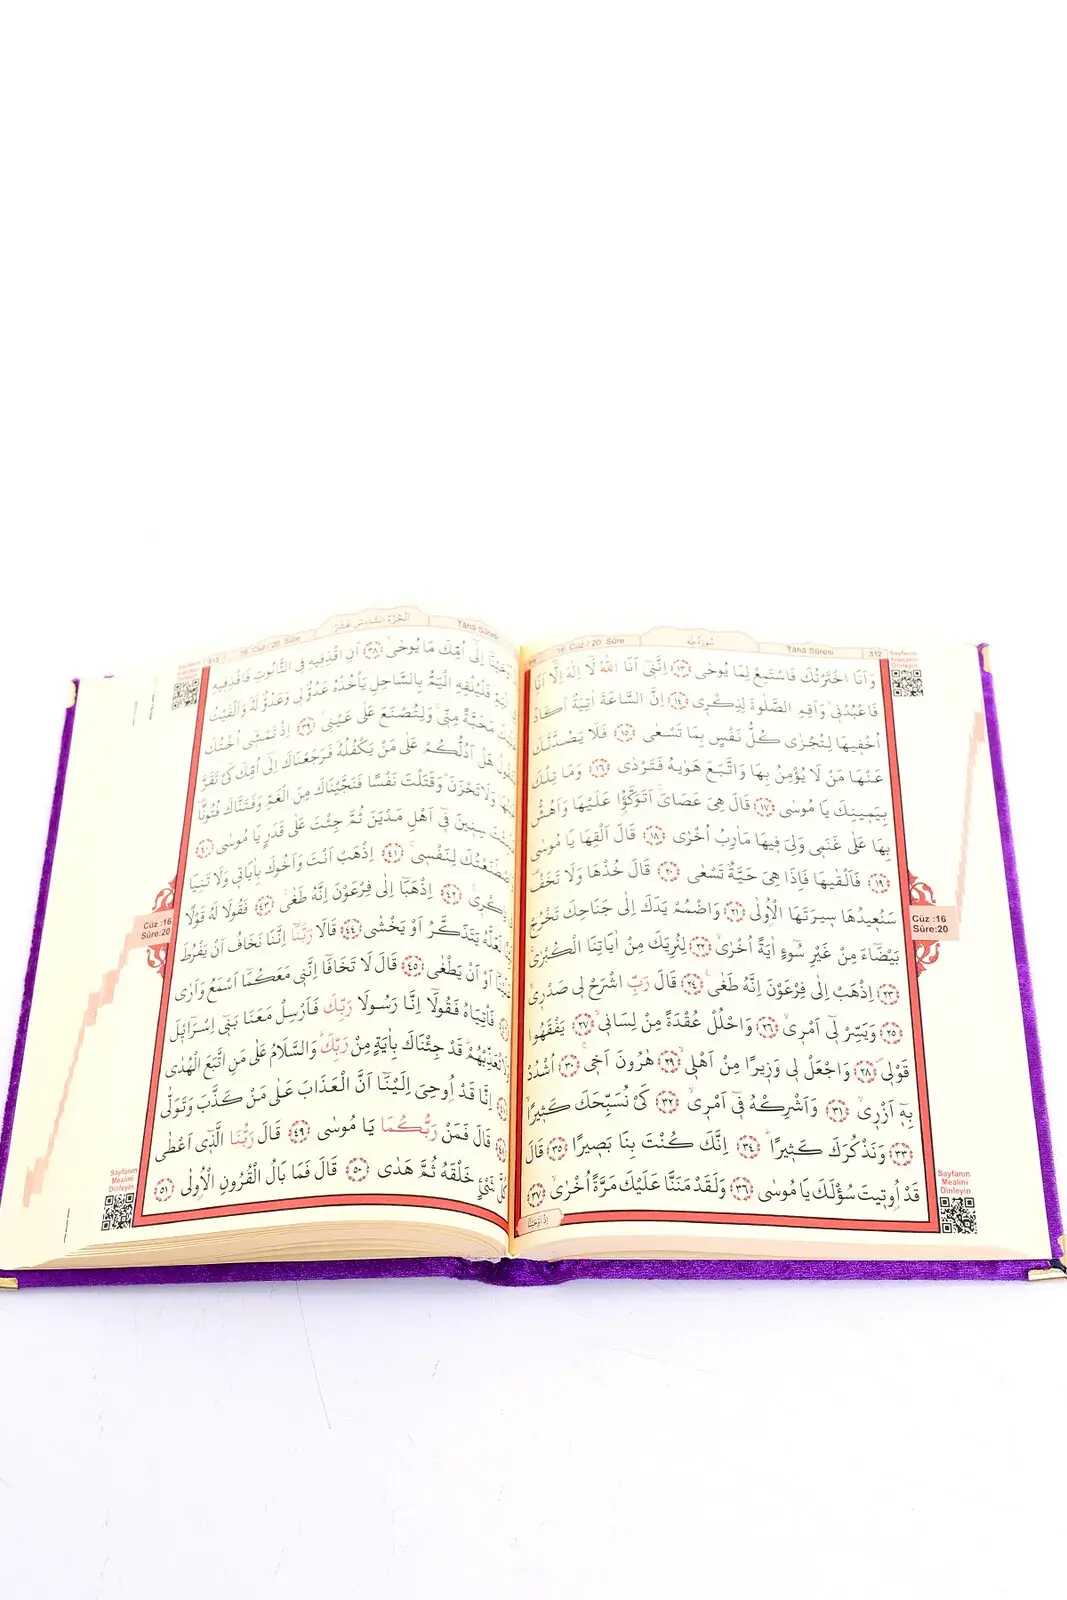 312
Tâhâ Sûresi
سُورَةُ طٰهٰ
16. Cüz / 20. Sûre
وَاَنَا اخْتَرْتُكَ فَاسْتَمِعْ لِمَا يُوحٰى ﴿١٣﴾ اِنَّنٖٓي اَنَا اللّٰهُ لَٓا اِلٰهَ اِلَّٓا اَنَا
فَاعْبُدْنٖي وَاَقِمِ الصَّلٰوةَ لِذِكْرٖي ﴿١٤﴾ اِنَّ السَّاعَةَ اٰتِيَةٌ اَكَادُ
اُخْفٖيهَا لِتُجْزٰى كُلُّ نَفْسٍ بِمَا تَسْعٰى ﴿١٥﴾ فَلَا يَصُدَّنَّكَ
عَنْهَا مَنْ لَا يُؤْمِنُ بِهَا وَاتَّبَعَ هَوٰيهُ فَتَرْدٰى ﴿١٦﴾ وَمَا تِلْكَ
بِيَمٖينِكَ يَا مُوسٰى ﴿١٧﴾ قَالَ هِيَ عَصَايَ اَتَوَكَّؤُا عَلَيْهَا وَاَهُشُّ
بِهَا عَلٰى غَنَمٖي وَلِيَ فٖيهَا مَاٰرِبُ اُخْرٰى ﴿١٨﴾ قَالَ اَلْقِهَا يَا مُوسٰى
﴿١٩﴾ فَاَلْقٰيهَا فَاِذَا هِيَ حَيَّةٌ تَسْعٰى ﴿٢٠﴾ قَالَ خُذْهَا وَلَا تَخَفْ
سَنُعٖيدُهَا سٖيرَتَهَا الْاُولٰى ﴿٢١﴾ وَاضْمُمْ يَدَكَ اِلٰى جَنَاحِكَ تَخْرُجْ
بَيْضَٓاءَ مِنْ غَيْرِ سُٓوءٍ اٰيَةً اُخْرٰى ﴿٢٢﴾ لِنُرِيَكَ مِنْ اٰيَاتِنَا الْكُبْرٰى
﴿٢٣﴾ اِذْهَبْ اِلٰى فِرْعَوْنَ اِنَّهُ طَغٰى ﴿٢٤﴾ قَالَ رَبِّ اشْرَحْ لٖي صَدْرٖي
﴿٢٥﴾ وَيَسِّرْ لٖٓي اَمْرٖي ﴿٢٦﴾ وَاحْلُلْ عُقْدَةً مِنْ لِسَانٖي ﴿٢٧﴾ يَفْقَهُوا
قَوْلٖي ﴿٢٨﴾ وَاجْعَلْ لٖي وَزٖيرًا مِنْ اَهْلٖي ﴿٢٩﴾ هٰرُونَ اَخٖي ﴿٣٠﴾ اُشْدُدْ
بِهٖٓ اَزْرٖي ﴿٣١﴾ وَاَشْرِكْهُ فٖٓي اَمْرٖي ﴿٣٢﴾ كَيْ نُسَبِّحَكَ كَثٖيرًا
﴿٣٣﴾ وَنَذْكُرَكَ كَثٖيرًا ﴿٣٤﴾ اِنَّكَ كُنْتَ بِنَا بَصٖيرًا ﴿٣٥﴾ قَالَ
قَدْ اُوتٖيتَ سُؤْلَكَ يَا مُوسٰى ﴿٣٦﴾ وَلَقَدْ مَنَنَّا عَلَيْكَ مَرَّةً اُخْرٰى ﴿٣٧﴾
اِذْ اَوْحَيْنَٓا
Cüz :16
Sûre:20
Sayfanın
Mealini
Dinleyin
Tâhâ Sûresi
اَلْجُزْءُ السَّادِسَ عَشَرَ
16. Cüz / 20. Sûre
313
اَوْحَيْنَٓا اِلٰٓى اُمِّكَ مَا يُوحٰى ﴿٣٨﴾ اَنِ اقْذِفٖيهِ فِي التَّابُوتِ فَاقْذِفٖيهِ
فَلْيُلْقِهِ الْيَمُّ بِالسَّاحِلِ يَأْخُذْهُ عَدُوٌّ لٖي وَعَدُوٌّ لَهُ وَاَلْقَيْتُ
مَحَبَّةً مِنّٖي وَلِتُصْنَعَ عَلٰى عَيْنٖي ﴿٣٩﴾ اِذْ تَمْشٖٓي اُخْتُكَ
هَلْ اَدُلُّكُمْ عَلٰى مَنْ يَكْفُلُهُ فَرَجَعْنَاكَ اِلٰٓى اُمِّكَ كَيْ تَقَرَّ
وَلَا تَحْزَنَ وَقَتَلْتَ نَفْسًا فَنَجَّيْنَاكَ مِنَ الْغَمِّ وَفَتَنَّاكَ فُتُونًا
سِنٖينَ فٖٓي اَهْلِ مَدْيَنَ ثُمَّ جِئْتَ عَلٰى قَدَرٍ يَا مُوسٰى ﴿٤٠﴾
لِنَفْسٖي ﴿٤١﴾ اِذْهَبْ اَنْتَ وَاَخُوكَ بِاٰيَاتٖي وَلَا تَنِيَا
ذِكْرٖي ﴿٤٢﴾ اِذْهَبَٓا اِلٰى فِرْعَوْنَ اِنَّهُ طَغٰى ﴿٤٣﴾ فَقُولَا لَهُ قَوْلًا
لَعَلَّهُ يَتَذَكَّرُ اَوْ يَخْشٰى ﴿٤٤﴾ قَالَا رَبَّنَٓا اِنَّنَا نَخَافُ اَنْ يَفْرُطَ
اَوْ اَنْ يَطْغٰى ﴿٤٥﴾ قَالَ لَا تَخَافَٓا اِنَّنٖي مَعَكُمَٓا اَسْمَعُ وَاَرٰى
فَاْتِيَاهُ فَقُولَٓا اِنَّا رَسُولَا رَبِّكَ فَاَرْسِلْ مَعَنَا بَنٖٓي اِسْرَٓائٖلَ
تُعَذِّبْهُمْ قَدْ جِئْنَاكَ بِاٰيَةٍ مِنْ رَبِّكَ وَالسَّلَامُ عَلٰى مَنِ اتَّبَعَ الْهُدٰى
اِنَّا قَدْ اُوحِيَ اِلَيْنَٓا اَنَّ الْعَذَابَ عَلٰى مَنْ كَذَّبَ وَتَوَلّٰى
قَالَ فَمَنْ رَبُّكُمَا يَا مُوسٰى ﴿٤٩﴾ قَالَ رَبُّنَا الَّذٖٓي اَعْطٰى
كُلَّ شَيْءٍ خَلْقَهُ ثُمَّ هَدٰى ﴿٥٠﴾ قَالَ فَمَا بَالُ الْقُرُونِ الْاُولٰى ﴿٥١﴾
Cüz :16
Sûre:20
Sayfanın
Mealini
Dinleyin